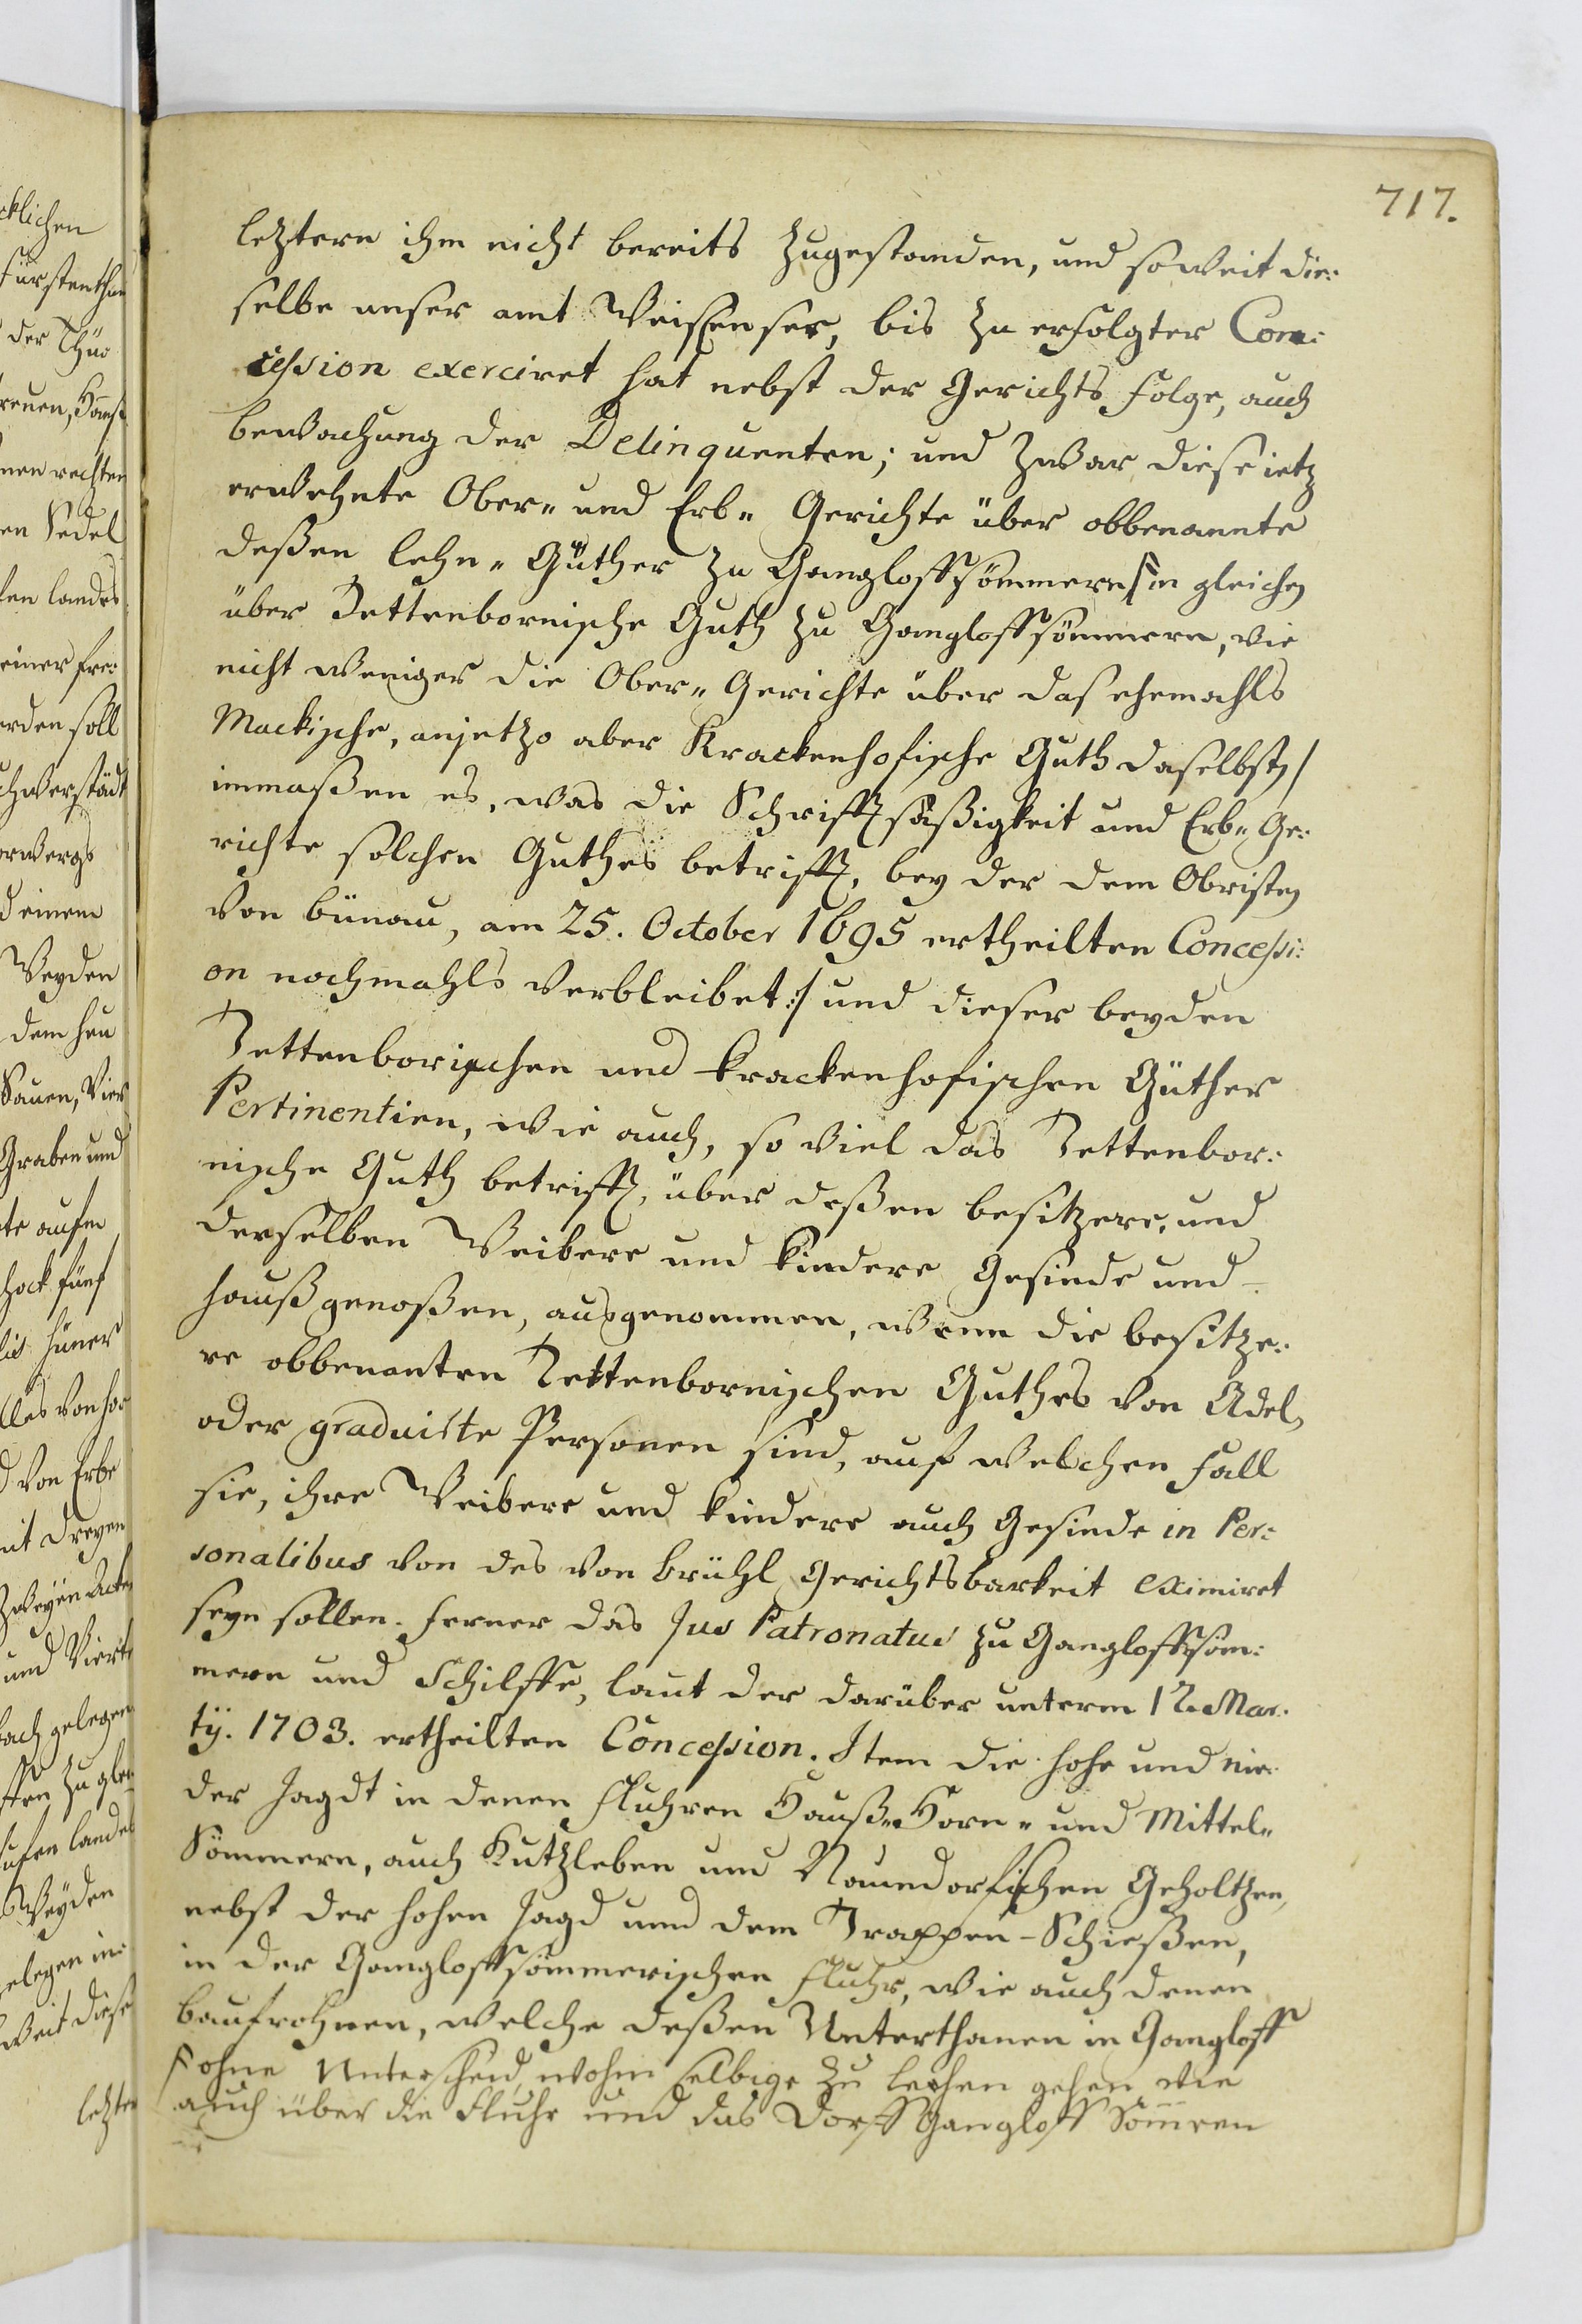 717.
letztern ihm nicht bereits zugestanden, und soweit die:
selbe unser amt Weisensee, bis zu erfolgter Con:
cession exerciret hat nebst der Gerichts folge, auch
bewachung der Delinquenten; und zwar diese ietz
erwehnte Ober- und Erb- Gerichte über obbenannte
deßen Lehn- Güther zu Gangloffsömmern/ in gleichen
über Tettenbornische Guth zu Gangloffsömmern, wie
nicht weniger die Ober- Gerichte über das ehemahls
Mackische, anjetzo aber Krackenhofische Guth daselbst/
immaßen es, was die Schrifftsäßigkeit und Erb- Ge:
richte solchen Guthes betrifft, bey der dem Obristen
von bünau, am 25. October 1695 ertheilten Concessi:
on nochmahls verbleibet:/ und dieser beyden
Tettenborischen und Krackenhofischen Güther
Pertinentien, wie auch, so viel das Tettenbor:
nische Guth betrifft, über deßen besitzere, und
derselben Weibere und Kindere Gesinde und
haußgenoßen, ausgenommen, wenn die besitze:
re obbenanten Tettenbornischen Guthes von Adel,
oder graduirte Personen sind, auf welchen fall
sie, ihre Weibere und Kindere auch Gesinde in Per:
sonalibus von des von Brühl Gerichtsbarkeit eximiret
seyn sollen. ferner das Jus Patronatus zu Gangloffsöm:
mern und Schilffe, laut der darüber unterm 12. Mar:
tij. 1703. ertheilten Concession. Item die hohe und nie:
der Jagdt in denen Fluhren Hauß- Horn- und Mittel-
Sömmern, auch Kutzleben und Naundorfischen Geholtzen,
nebst der hohen Jagd und dem Trappen-Schießen,
in der Gangloffsömmerischen Fluhr, wie auch denen
baufrohnen, welche deßen Unterthanen in Gangloff
/ ohne Unterscheid, wohin selbige zu Lechen gehen, wie
auch über die Fluhr und das Dorff Gangloff Sömren